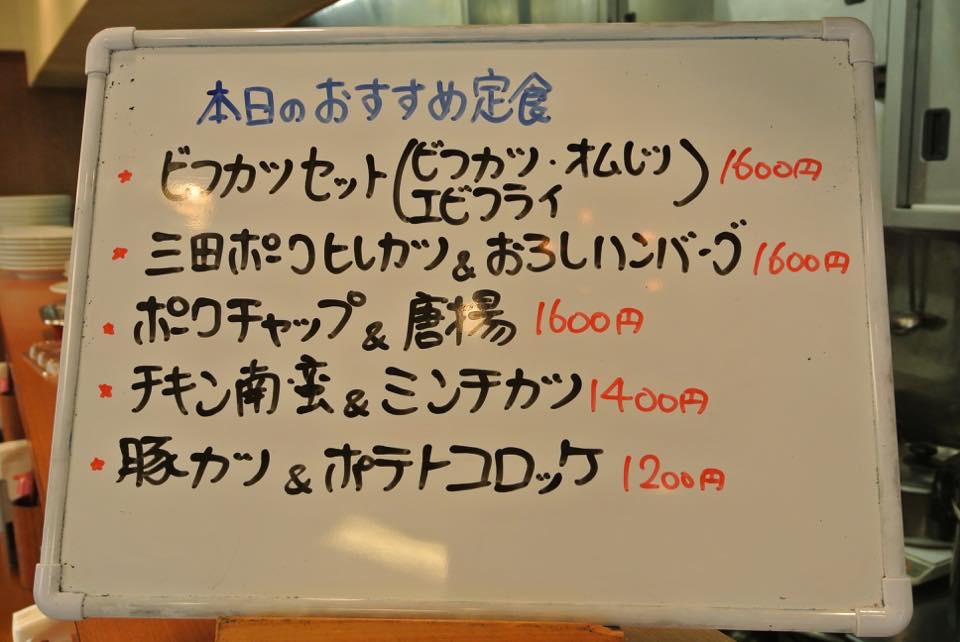 本日のおすすめ定食
ビフカツセット(ビフカツ・オムレツ 1600円
エビフライ)
三田ポークヒレカツ&おろしハンバーグ 1600円
ポークチャップ&唐揚 1600円
チキン南蛮&ミンチカツ 1400円
豚カツ&ポテトコロッケ 1200円